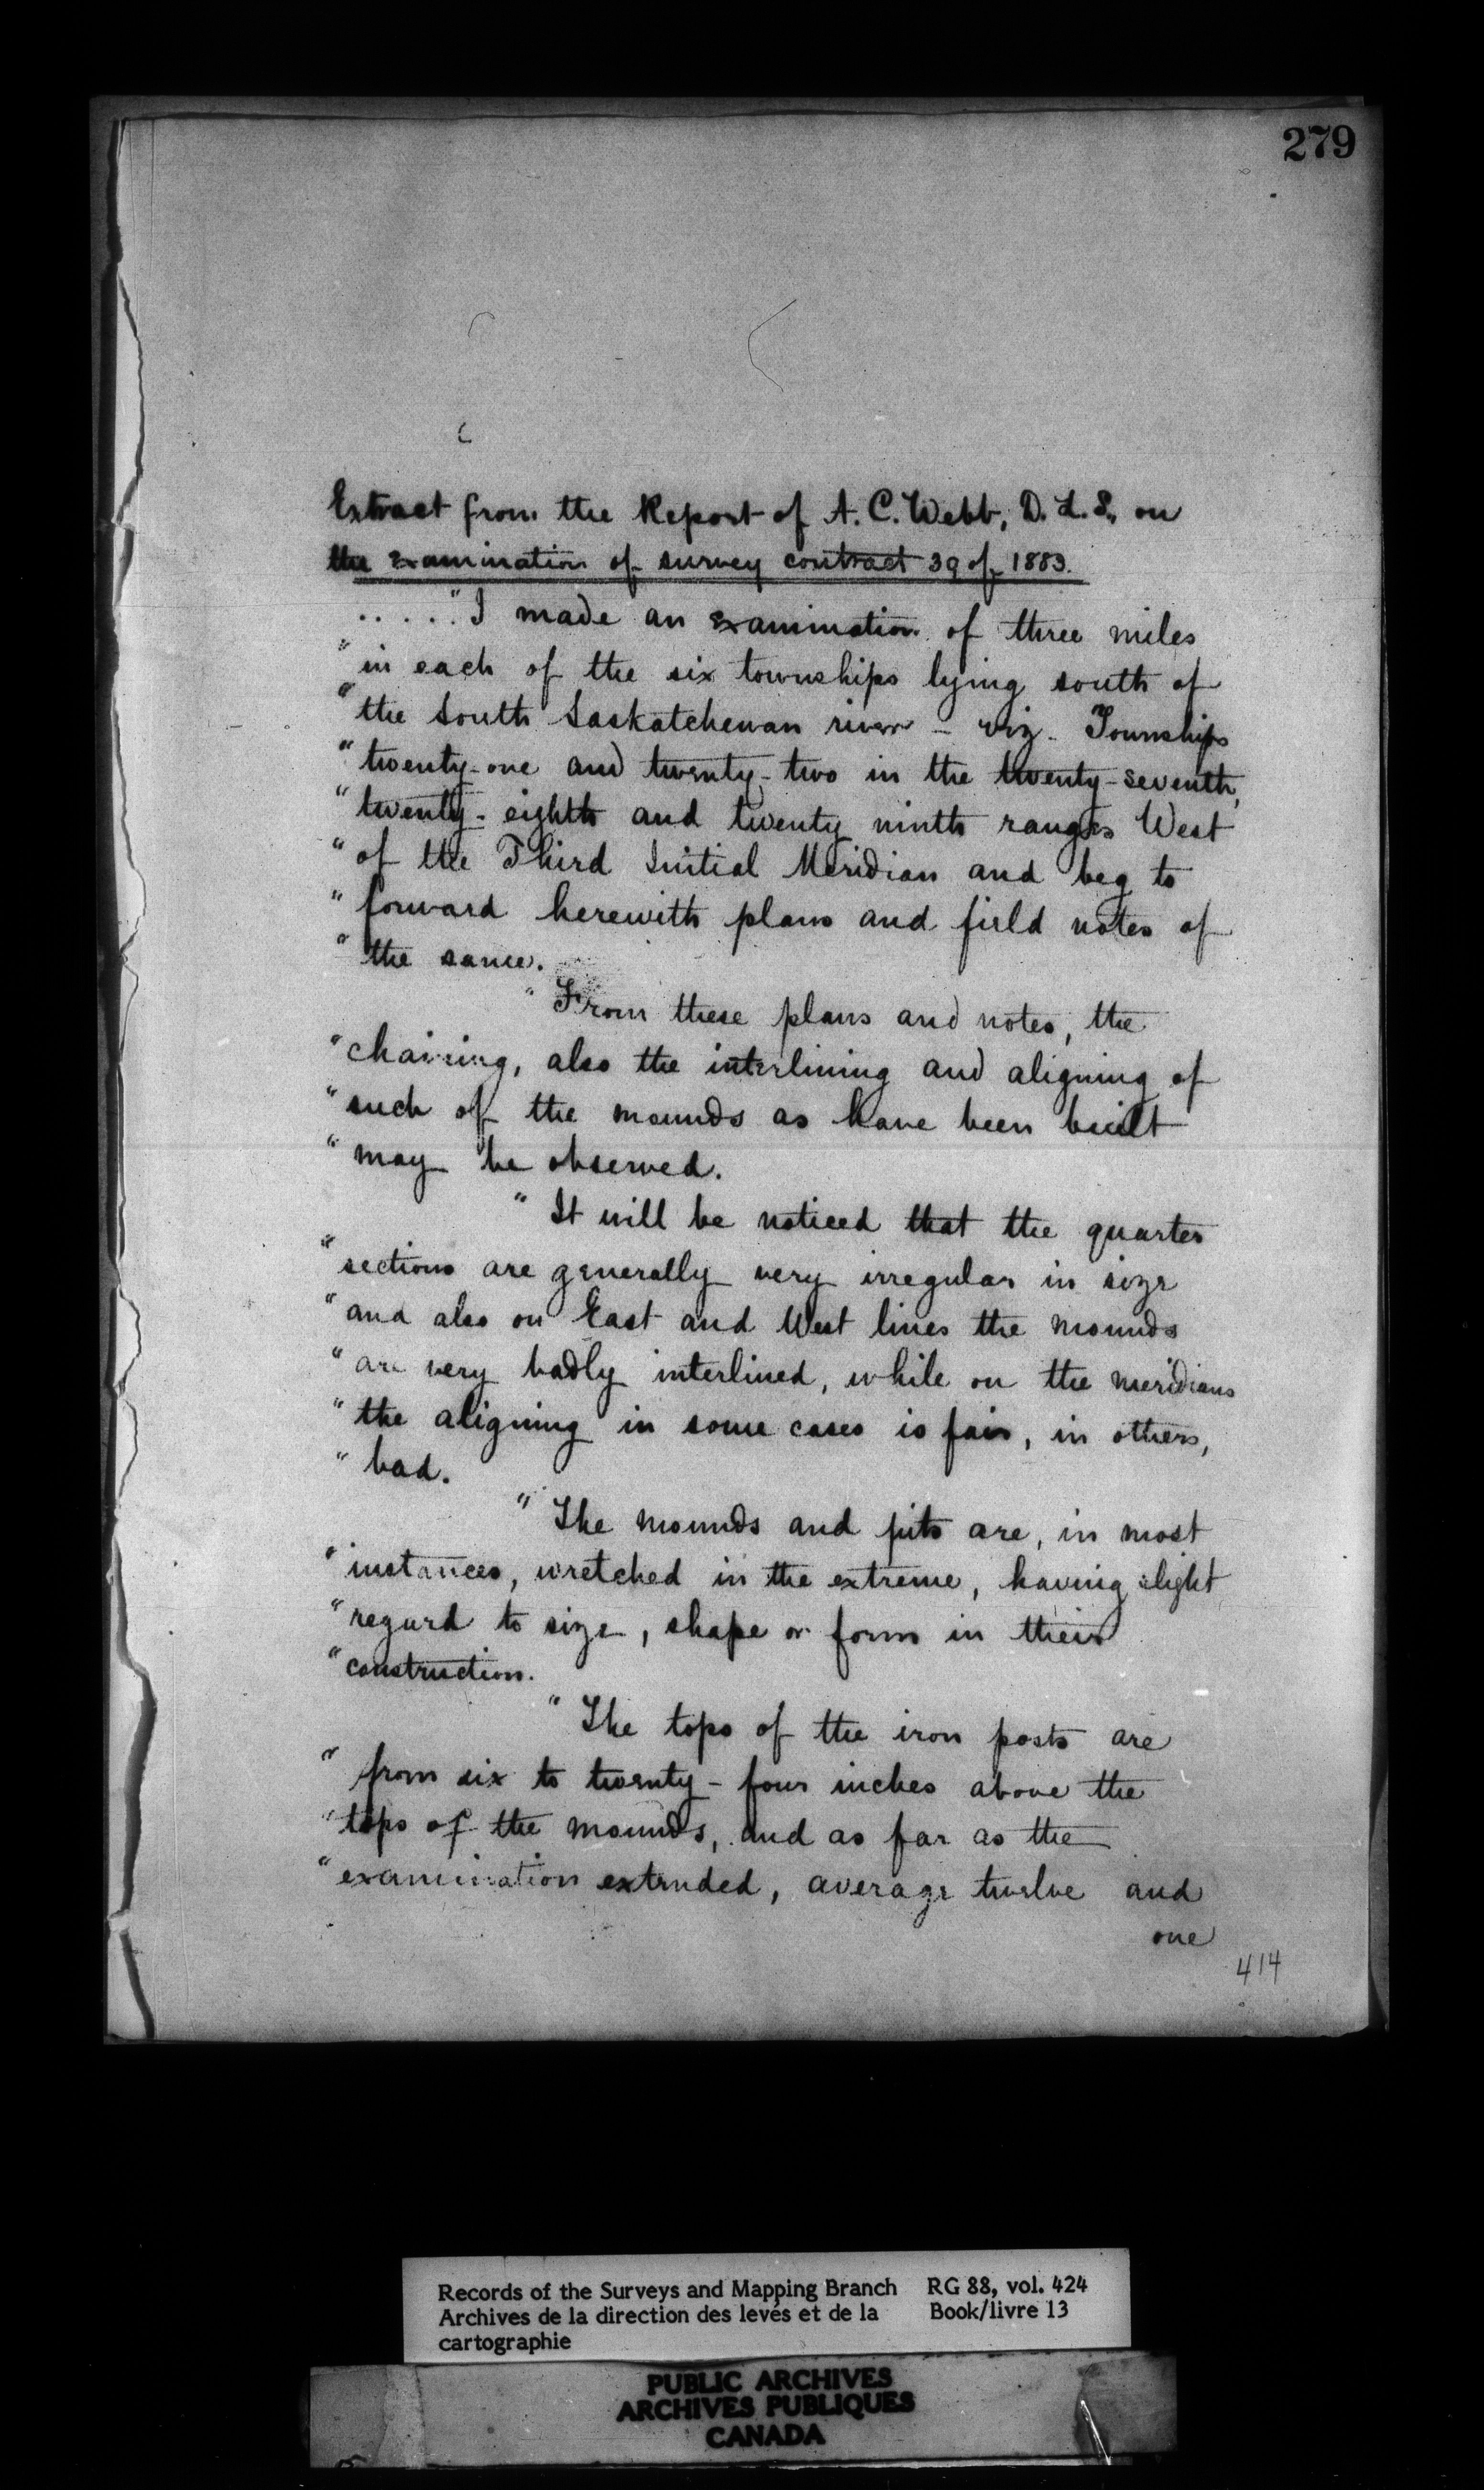 279
Extract from the Report of A. C. Webb, D. L. S., on
the examination of survey contract 39 of 1883.
....."I made an examination of three miles
"in each of the six townships lying south of
"the South Saskatchewan river – viz. Townships
"twenty-one and twenty-two in the twenty-seventh,
"twenty-eighth and twenty ninth ranges West
"of the Third Initial Meridian and beg to
"forward herewith plans and field notes of
"the same.
"From these plans and notes, the
"chaining, also the interlining and aligning of
"such of the mounds as have been built
"may be observed.
"It will be noticed that the quarter
"sections are generally very irregular in size
"and also on East and West lines the mounds
"are very badly interlined, while on the meridians
"the aligning in some cases is fair, in others,
"bad.
"The mounds and pits are, in most
"instances, wretched in the extreme, having slight
"regard to size, shape or form in their
"construction.
"The tops of the iron posts are
"from six to twenty-four inches above the
"tops of the mounds, and as far as the
"examination extended, average twelve and
one
414
Records of the Surveys and Mapping Branch RG 88, vol. 424
Archives de la direction des levés et de la Book/livre 13
cartographie
PUBLIC ARCHIVES
ARCHIVES PUBLIQUES
CANADA